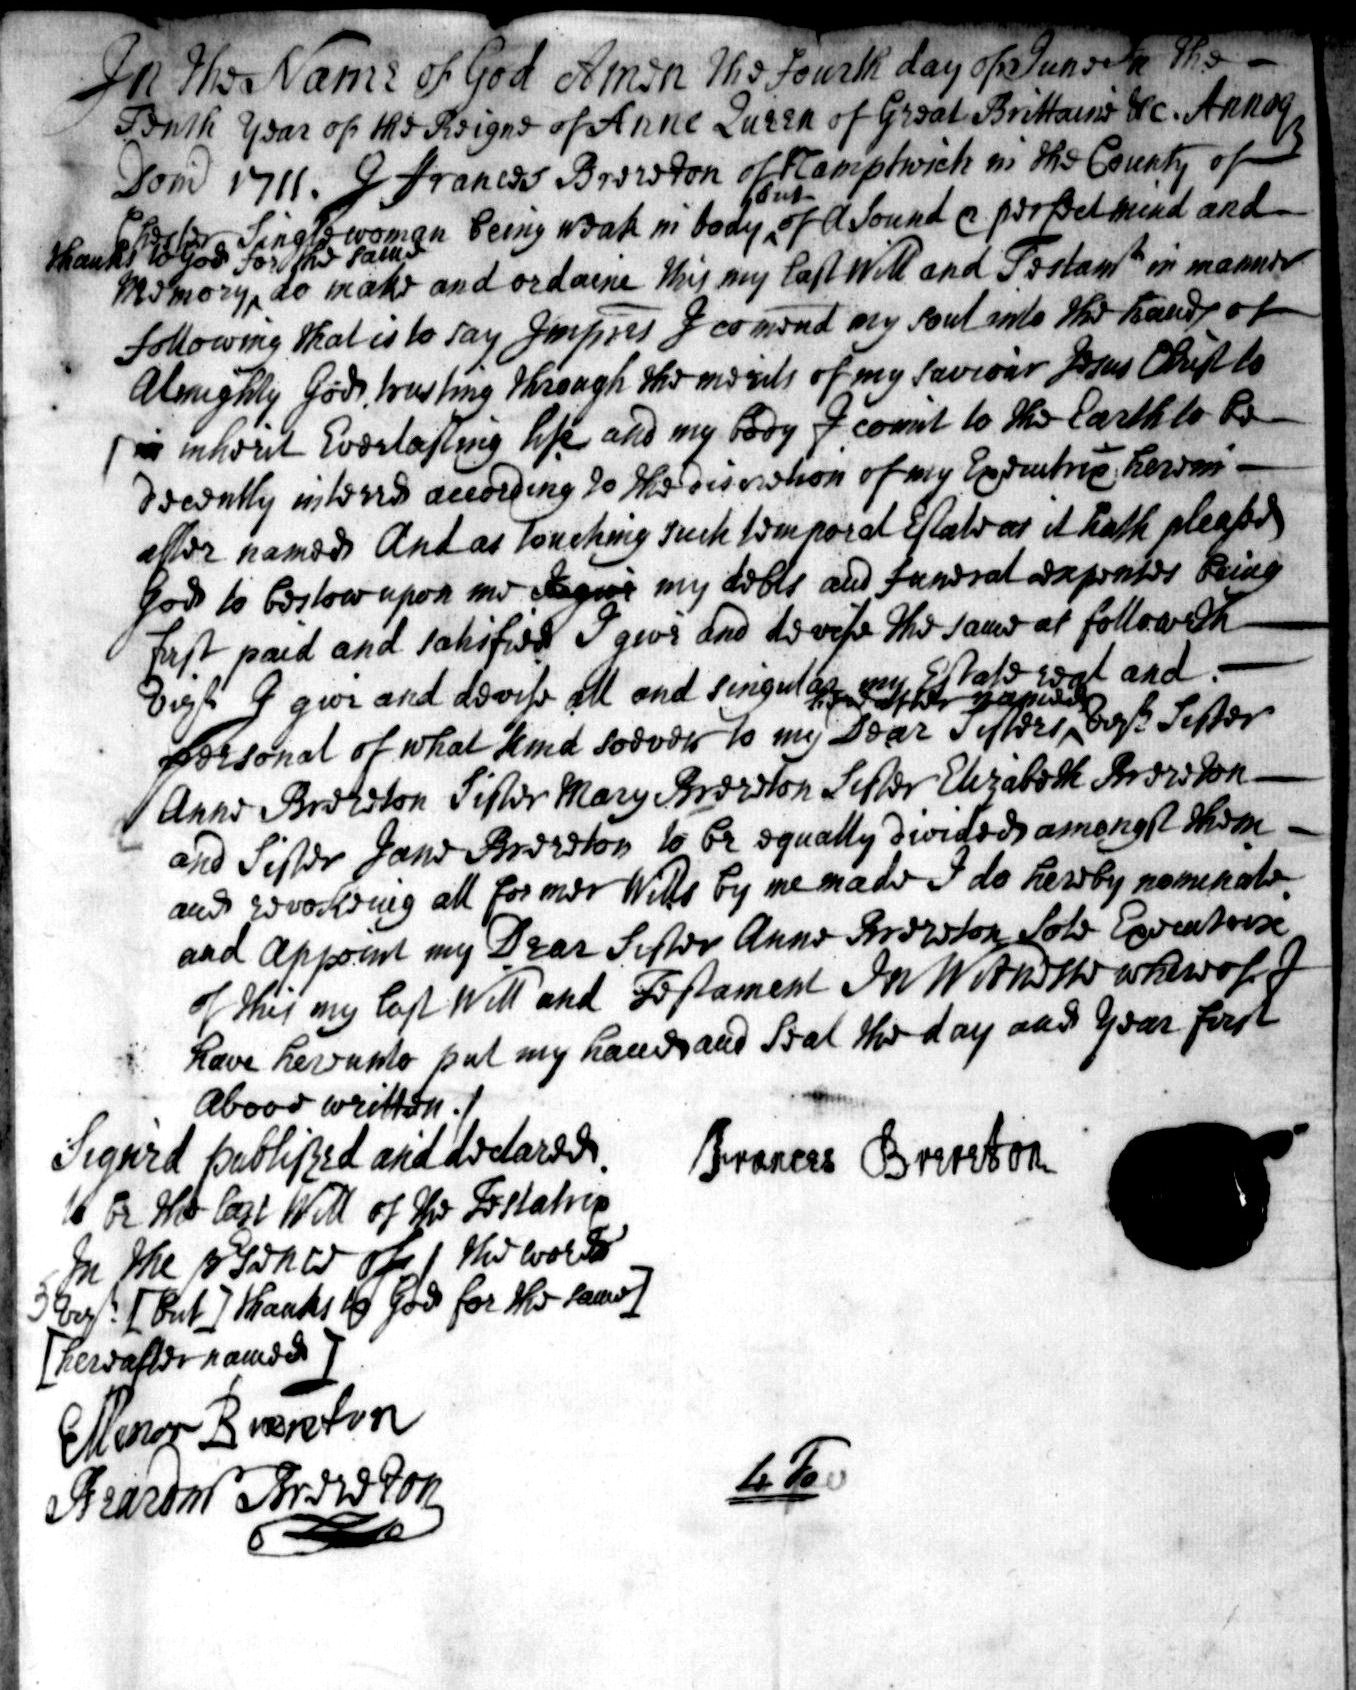 In the Name of God Amen the Fourth day of June In the
Tenth Year of the Reigne of Anne Queen of Great Brittaine &c. Annoq
Domi 1711. I Frances Brereton of Namptwich in the County of
but
Chester Singlewoman being weak in body ^ of a Sound & perfect mind and
thanks to God for the same
Memory ^ do make and ordaine this my last Will and Testamt in manner
following that is to say Imprs I comend my soul into the hands of
Almighty God, trusting through the merits of my saviour Jesus Christ to
inherit Everlasting life and my body I comit to the Earth to be
decently interred according to the discretion of my Executrix herein
after named And as touching such temporal Estate as it hath pleased
God to bestow upon me I give my debts and funeral expences being
first paid and satisfied I give and devise the same as followeth
vizt I give and devise all and singular my Estate real and
hereafter named
personal of what kind soever to my Dear Sisters ^ vizt Sister
Anne Brereton Sister Mary Brereton Sister Elizabeth Brereton
and Sister Jane Brereton to be equally divided amongst them
and revokeing all former Wills by me made I do hereby nominate
and appoint my Dear Sister Anne Brereton Sole Executrix
of this my last Will and Testament In Witnesse whereof I
have hereunto put my hand and Seal the day and Year first
above written./
Sign'd publish'd and declared Frances Brereton
to be the last Will of the Testatrix
In the presence of / the words
vizt [but] thanks to God for the same]
[hereafter named]
Ellenor Brereton
Brereton